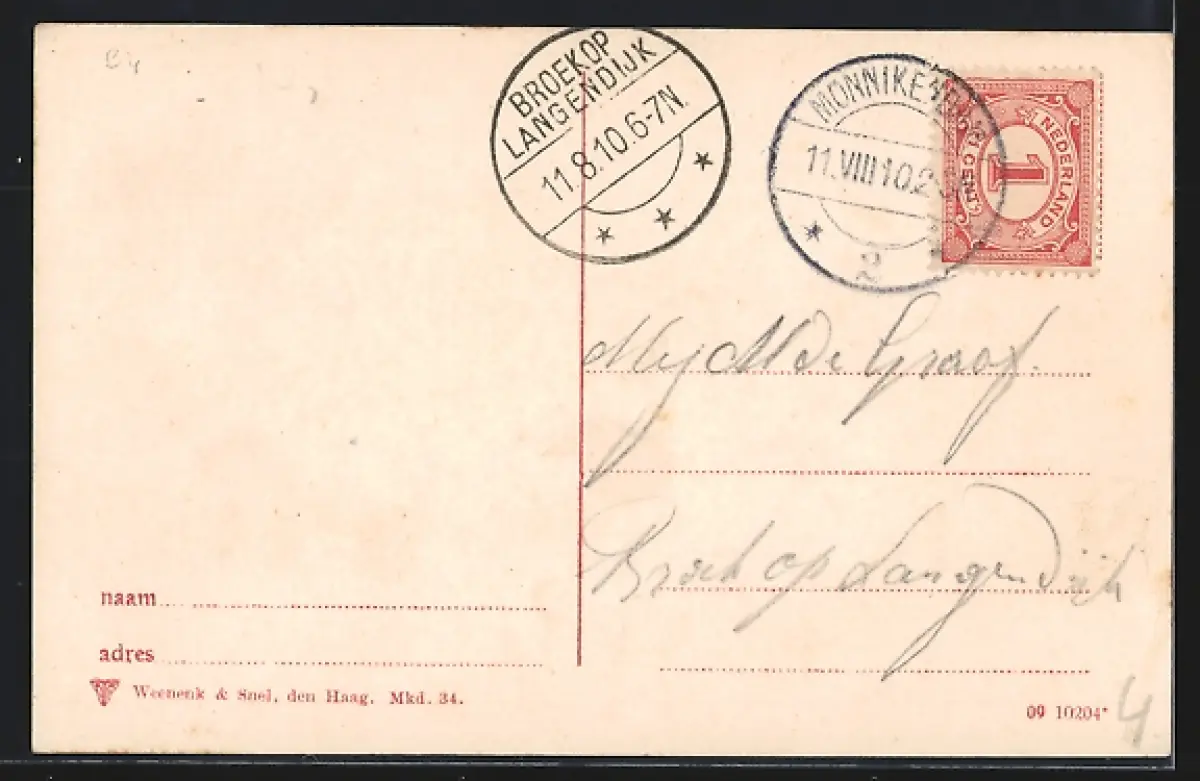 B4
BROEKOP
LANGENDIJK
11.8.10.6-7N.
MONNIKEND
11.VIII 10.2-
2
NEDERLAND
1
1 CENT
Mej M de Graaf.
Broek op Langendijk
naam
adres
Weenenk & Snel, den Haag. Mkd. 34.
09 10204*
4